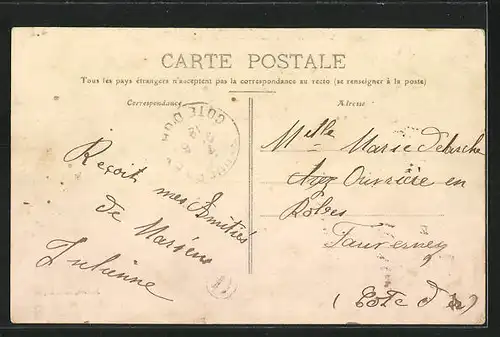 CARTE POSTALE
Tous les pays étrangers n'acceptent pas la correspondance au recto (se renseigner à la poste)
Correspondance
Adresse
COTE D'OR
Reçoit mes Amitiés
de
Julienne
Melle Marie
Chez Ouvrière en
Robes
Tauverney
(Cote d'or)